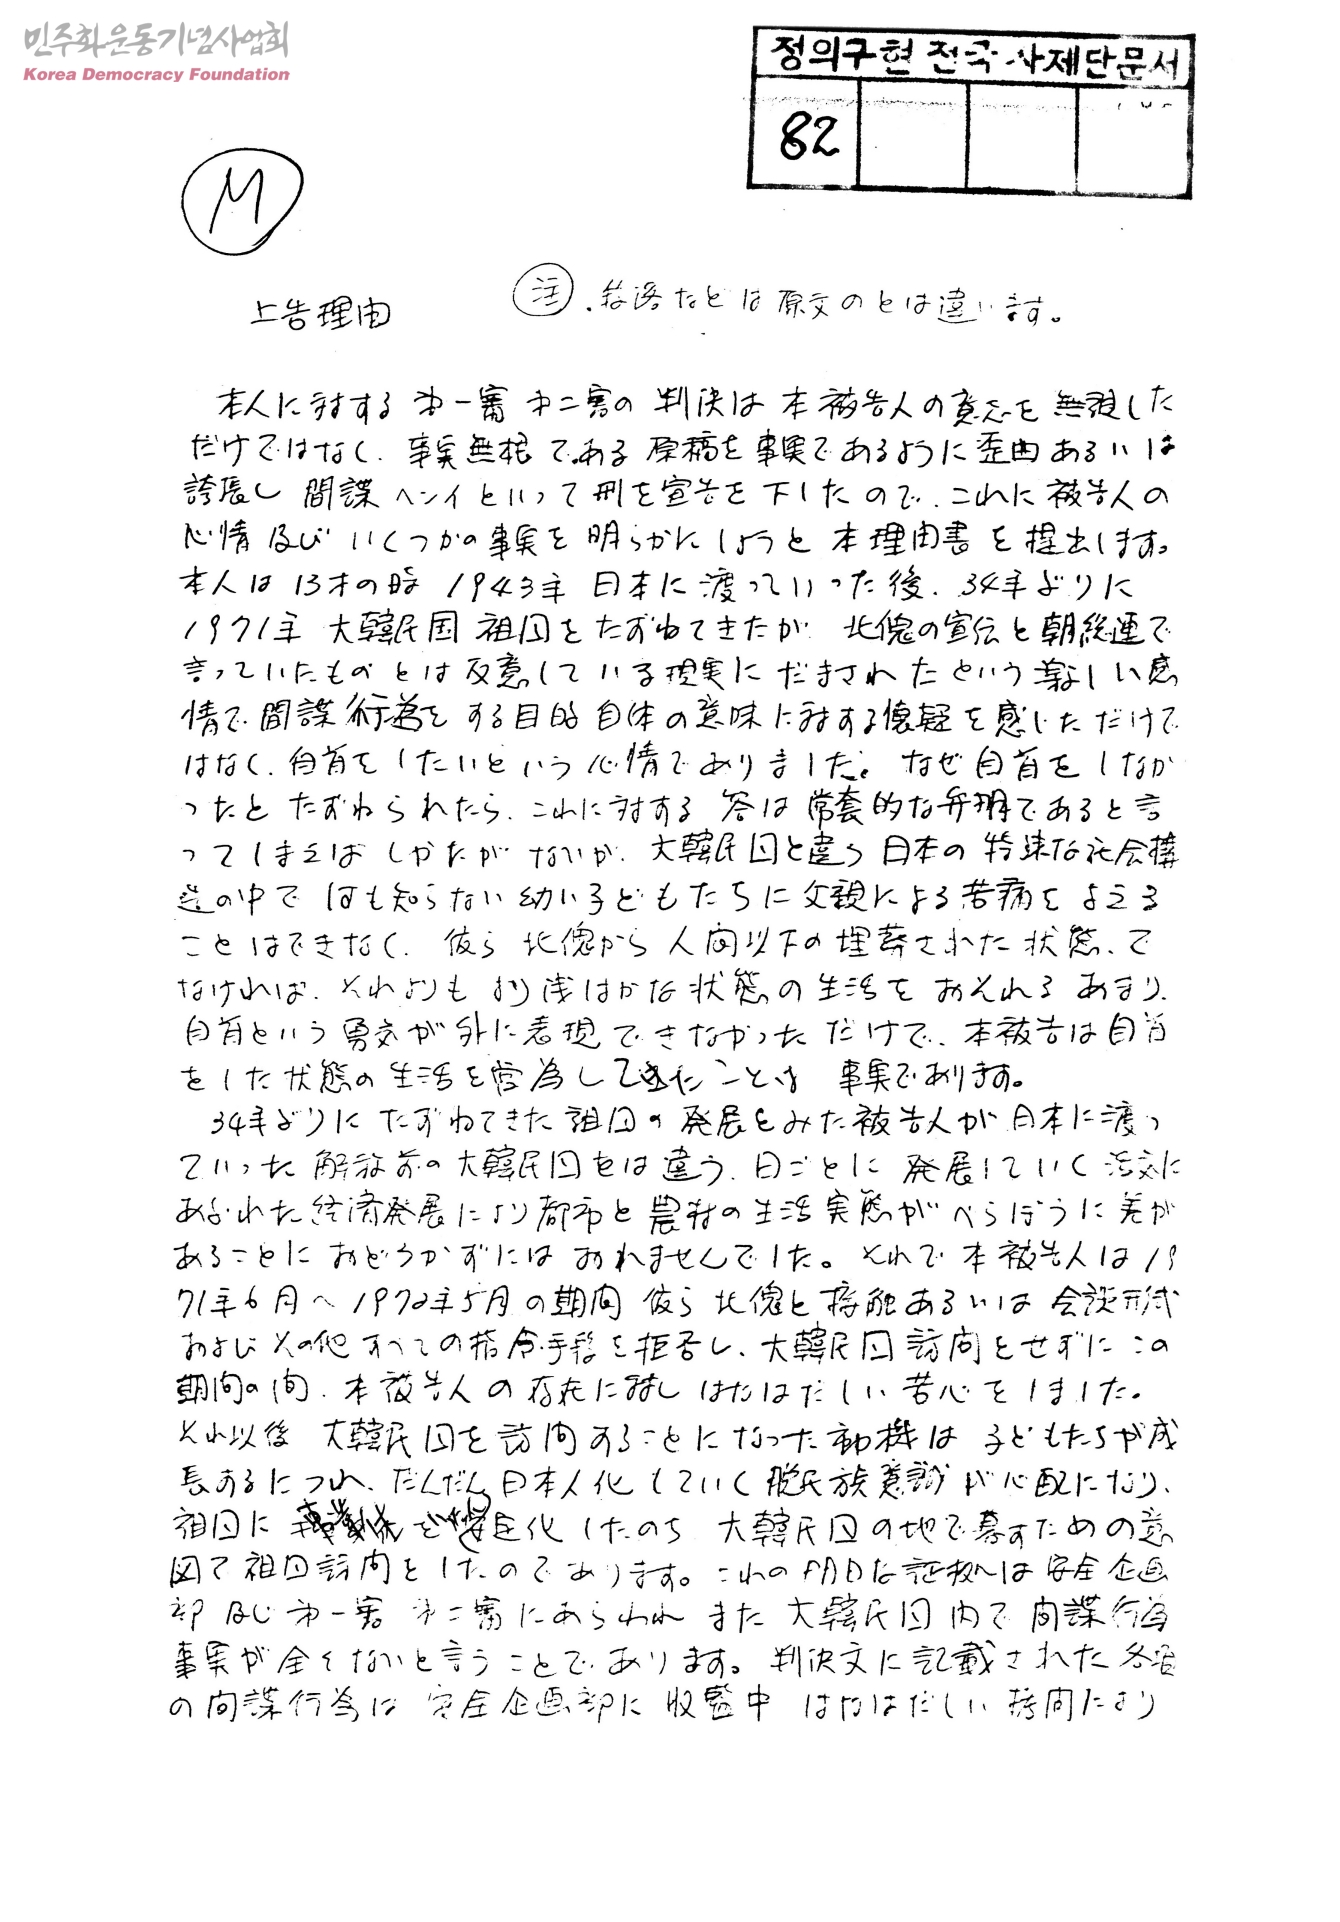 민주화운동기념사업회
Korea Democracy Foundation
정의구현 전국 사제단문서
82
M
上告理由
注. 段落などは原文のとは違います。
本人に対する 第一審 第二審の 判決は 本被告人の意志を 無視した
だけではなく、事実無根である 原稿を事実であるように歪曲あるいは
誇張し 間諜ヘンイといって刑を宣告を下したので、これに被告人の
心情及び いくつかの事実を 明らかにしようと 本理由書を提出します。
本人は 13才の時 1943年 日本に渡っていった後、34年ぶりに
1971年 大韓民国 祖国をたずねてきたが 北傀の宣伝と朝総連で
言っていたものとは反意している現実に だまされたという 悲しい感
情で 間諜行為を する目的 自体の意味に対する懐疑を感じただけで
はなく、自首を したいという 心情でありました。なぜ自首をしなか
ったと たずねられたら、これに対する 答は 常套的な弁明であると言
ってしまえば しかたが ないが、大韓民国と違う 日本の 特殊な社会構
造の中で 何も知らない幼い子どもたちに父親による苦痛を 与える
ことはできなく、彼ら 北傀から 人間以下の埋葬された状態、で
なければ、それよりも より浅はかな状態の生活を おそれる あまり、
自首という 勇気が外に表現 できなかっただけで、本被告は自首
をした状態の 生活を営為してきたことは 事実であります。
34年ぶりに たずねてきた祖国の 発展をみた被告人が 日本に渡っ
ていった 解放前の大韓民国をは違う、日ごとに 発展していく 活気に
あふれた経済発展により都市と農村の生活実態が べらぼうに差が
あることに おどろかずには おれませんでした。それで 本被告人は 19
71年6月〜1972年5月の期間 彼ら 北傀と接触あるいは 会談形式
および その他 すべての指令手段を拒否し、大韓民国訪問をせずに この
期間の間、本被告人の存在に対し はなはだしい苦心をしました。
それ以後 大韓民国を訪問することになった動機は 子どもたちが成
長するにつれ、だんだん日本人化していく 脱民族意識が心配になり、
祖国に を 定化したのち 大韓民国の地で暮すための意
図で祖国訪問をしたのであります。これの明白な証拠は安全企画
部及び 第一審 第二審にあらわれ また 大韓民国内で間諜行為
事実が全くないと言うことであります。判決文に記載された各種
の間諜行為は 安全企画部に収監中 はなはだしい拷問により